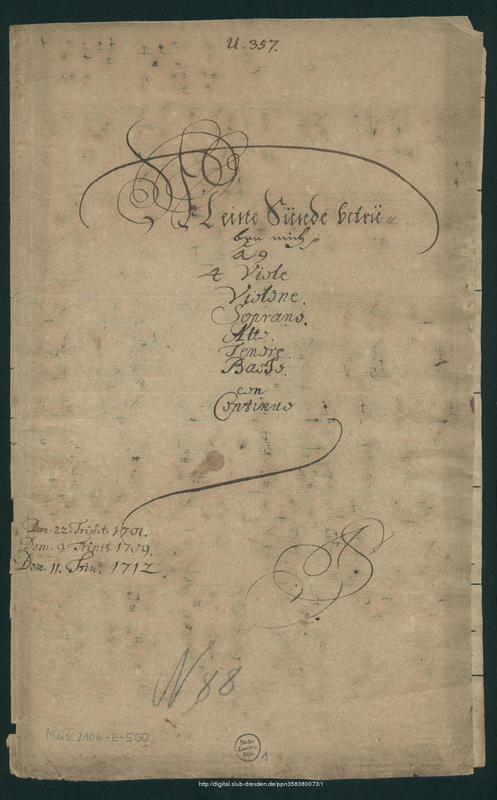 U. 357.
Meine Sünde betrü=
ben mich
â 9
4 Viole
Violone.
Soprano.
Alto.
Tenore.
Basso.
con
Continuo
Dom. 22. Trinit. 1701.
Dom. 9. Trinit. 1709.
Dom. 11. Trin. 1712
N 88
Mus. 2106-E-500
Sächs.
Landes-
Bibl.
1
http://digital.slub-dresden.de/ppn358380073/1